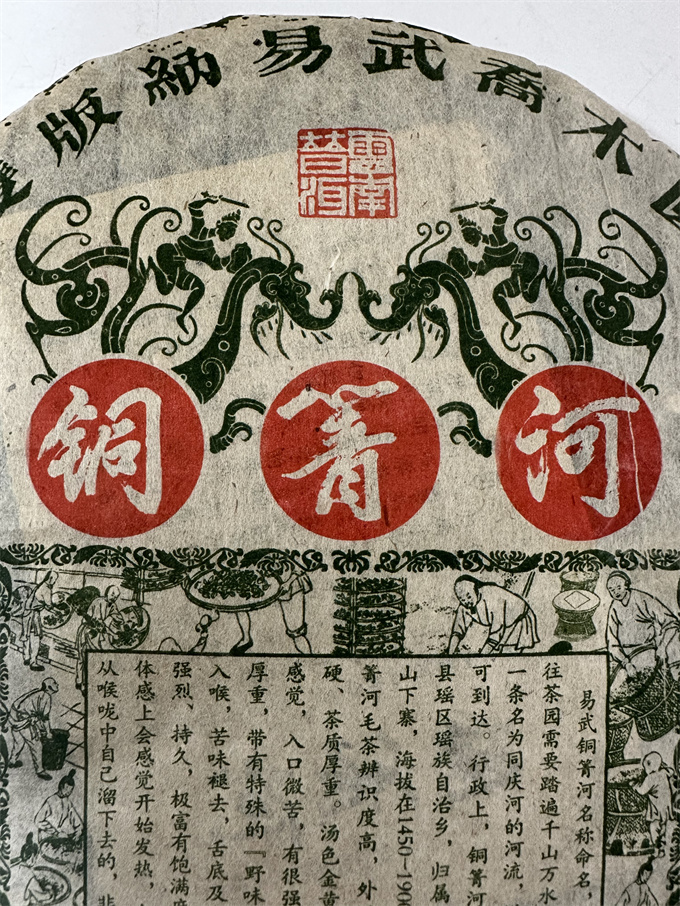 版納易武喬木
雲南普洱
铜箐河
易武铜箐河名称命名，
往茶园需要踏遍千山万水
一条名为同庆河的河流，
可到达。行政上，铜箐河
县瑶区瑶族自治乡，归属
山下寨，海拔在1450-190
箐河毛茶辨识度高，外
硬、茶质厚重。汤色金黄
感觉，入口微苦，有很强
厚重，带有特殊的『野味
入喉，苦味褪去，舌底及
强烈、持久，极富有饱满
体感上会感觉开始发热，
从喉咙中自己溜下去的，